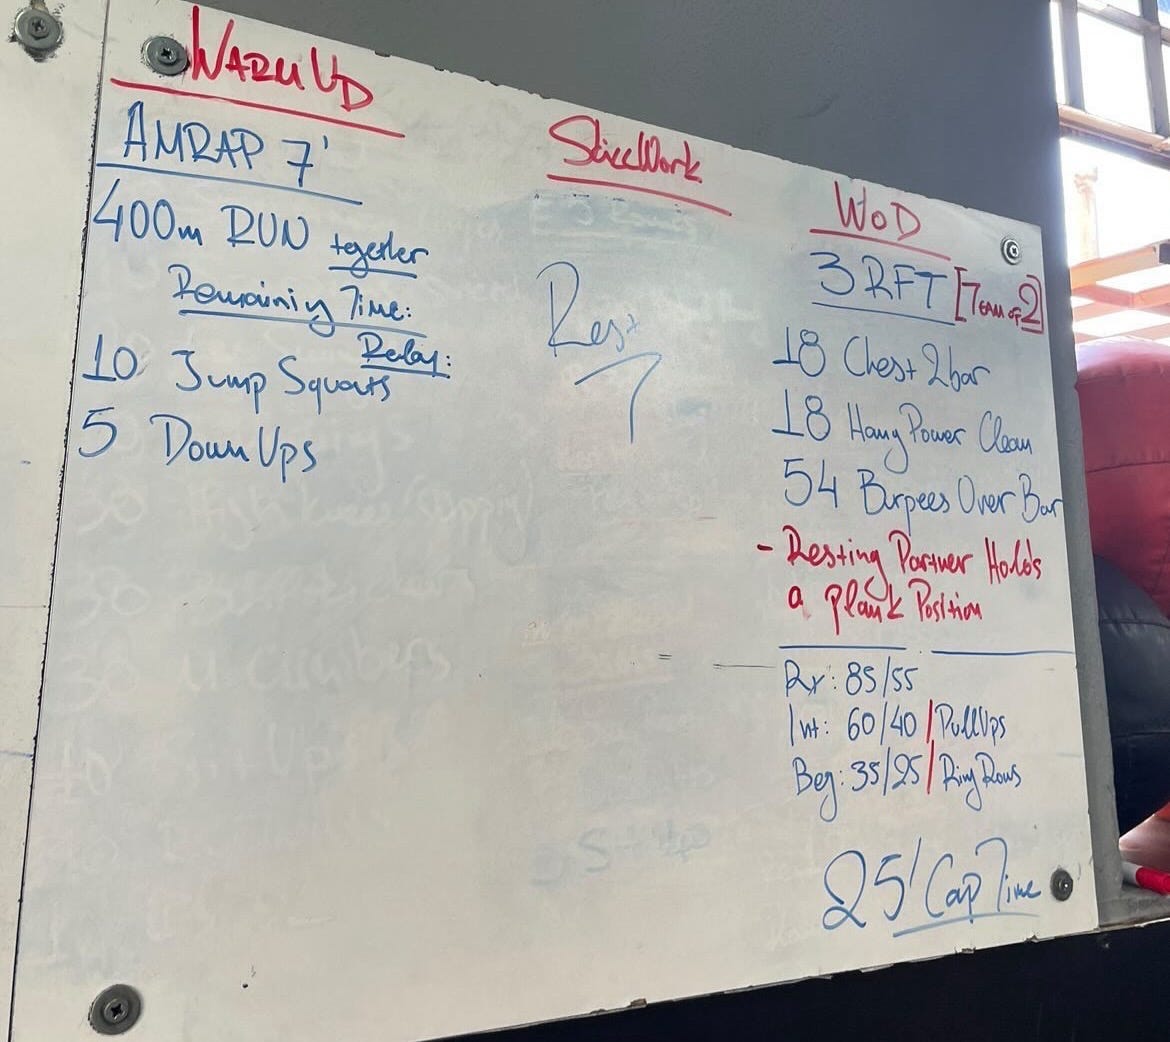 WARM UP
AMRAP 7'
400m RUN together
Remaining Time:
Relay:
10 Jump Squats
5 Down Ups
SkillWork
Rest
WOD
3 RFT [TEAM OF 2]
18 Chest 2bar
18 Hang Power Clean
54 Burpees Over Bar
- Resting Partner Holds
a Plank Position
Rx: 85/55
Int: 60/40 / PullUps
Beg: 35/25 / Ring Rows
25' Cap Time